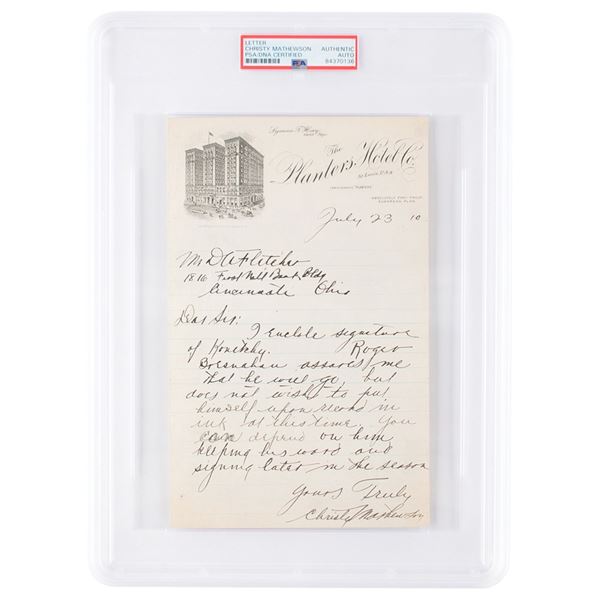 LETTER
CHRISTY MATHEWSON
PSA/DNA CERTIFIED
AUTHENTIC
AUTO
PSA
84370136
The
Planters Hotel Co.
St. Louis, U.S.A.
ABSOLUTELY FIRE PROOF
EUROPEAN PLAN
July 23 10
Mr D A Fletcher
1816 First Nat'l Bank Bldg
Cincinnati Ohio
Dear Sir:
I enclose signature
of Konetchy. Roger
Bresnahan assures me
that he will go, but
does not wish to put
himself upon record in
ink at this time. You
can depend on him
keeping his word and
signing later in the season
Yours Truly
Christy Mathewson